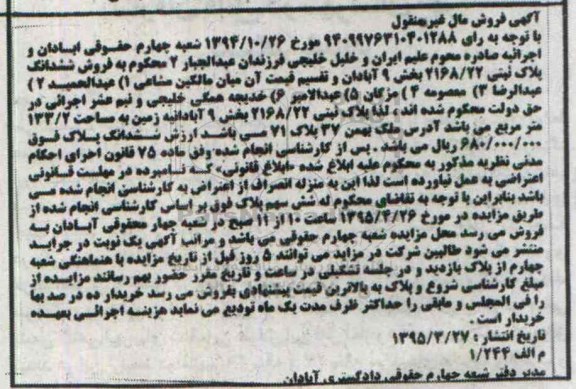 آگهی فروش مال غیرمنقول
با توجه به رای ۹۴۰۹۹۷۶۳۱۰۴۰۱۲۸۸ مورخ ۱۳۹۴/۱۰/۲۶ شعبه چهارم حقوقی آبادان و
اجرائیه صادره محوم علیم ایران و خلیل خلیجی فرزندان عبدالجبار ۲ محکوم به فروش ششدانگ
پلاک ثبتی ۲۱۶۸/۲۲ بخش ۹ آبادان و تقسیم قیمت آن میان مالکین مشاعی ۱) عبدالحمید ۲)
عبدالرضا ۳) معصومه ۴) مژگان ۵) عبدالامیر ۶) خدیجه همگی خلیجی و نیم عشر اجرائی در
حق دولت محکوم شده اند ، لذا پلاک ثبتی ۲۱۶۸/۲۲ بخش ۹ آبادانیه زمین به مساحت ۱۳۳/۲
متر مربع می باشد آدرس ملک بهمن ۳۷ پلاک ۷۱ مسی باشد ارزش ششدانگ پلاک فوق
۶۸۰/۰۰۰/۰۰۰ ریال می باشد . پس از کارشناسی انجام شده وفق ماده ۷۵ قانون اجرای احکام
مدنی نظریه مذکور به محکوم علیه ابلاغ شده «ابلاغ قانونی» که نامبرده در مهلت قانونی
اعتراضی به عمل نیاورده است لذا این به منزله انصراف از اعتراض به کارشناسی انجام شده مسی
باشد بنابراین با توجه به تقاضای محکوم له شش سهم پلاک فوق بر اساس کارشناسی انجام شده از
طریق مزایده در مورخ ۱۳۹۵/۴/۲۶ ساعت ۱۰ از ۱۱ صبح در شعبه چهار حقوقی آبادان به
فروش می رسد محل مزایده شعبه چهارم حقوقی می باشد و مراتب آگهی یک نوبت در جراید
منتشر می شود طالبین شرکت در مزاید می توانند ۵ روز قبل از تاریخ مزایده با هماهنگی شعبه
چهارم از پلاک بازدید و در جلسه تشکیلی در ساعت و تاریخ مقرر حضور بهم رسانند مزایده از
مبلغ کارشناسی شروع و پلاک به بالاترین قیمت پیشنهادی بفروش می رسد خریدار ده در صد بها
را فی المجلس و مابقی را حداکثر ظرف مدت یک ماه تودیع می نماید هزینه اجرائی بعهده
خریدار است .
تاریخ انتشار : ۱۳۹۵/۳/۲۷
م الف ۱/۲۴۴
مدیر دفتر شعبه چهارم حقوقی دادگستری آبادان